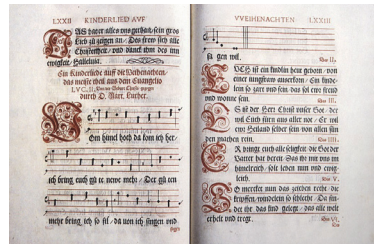 LXXII KINDERLIED AVF
Das hat er alles uns gethan / sein gros
Lieb zu zeigen an / Des frew sich alle
Christenheit / und danck ihm des inn
ewigkeit / Halleluia.
Ein Kinderlied auff die Weihenachten /
das meiste theil aus dem Euangelio
LVC, II,
durch D. Mart. Luther.
Vom himel hoch da kom ich her /
ich bring euch gute newe mehr / Der guten
mehr bring ich so fil / da von ich singen und
VVEIHENACHTEN LXXIII
sagen wil.
Vers II.
EVch ist ein kindlin heut geborn / von
einer iungfraw auserkorn / Ein kinde-
lein so zart und fein / das sol ewr frewd
und wonne sein.
Vers III.
Es ist der Herr Christ unser Got / der
wil Euch fürn aus aller not / Er wil
ewr Heiland selber sein / von allen sün
den machen rein.
Vers IIII.
Er bringt euch alle seligkeit / die Got der
Vatter hat bereit / Das ihr mit uns im
himelreich / solt leben nun und ewig-
leich.
Vers V.
So mercket nun das zeichen recht / die
krippen / windelein so schlecht / Da fin-
det ihr das kind gelegt / das alle welt
erhelt und tregt.
Vers VI.